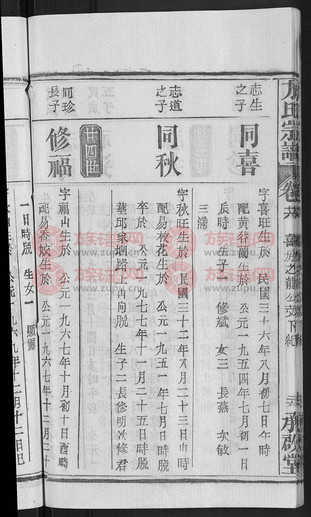 志生
之子
同喜
字喜旺生於 民國三十六年八月初七日午時
配黃谷蘭生於 公元一九五四年七月初一日
辰時 生子一 修斌 女二 長燕 次敏
三滿
志道
之子
同秋
字秋旺生於 民國三十二年八月二十三日巾時
配易校花生於 公元一九五一年七月
卒於 公元一九七七年十一月二十五日時
生子二長修明次修君
廿四世
同珍
長子
修福
字福 生於 公元一九六七年十月初十日酉時
配易春 生於 公元一九六七年十一月二十
一日時 生女一
生於 公元一九六九年十二月十二日
氏宗譜
卷
龍公支下
承啟堂
族譜網
www.zupu.cn